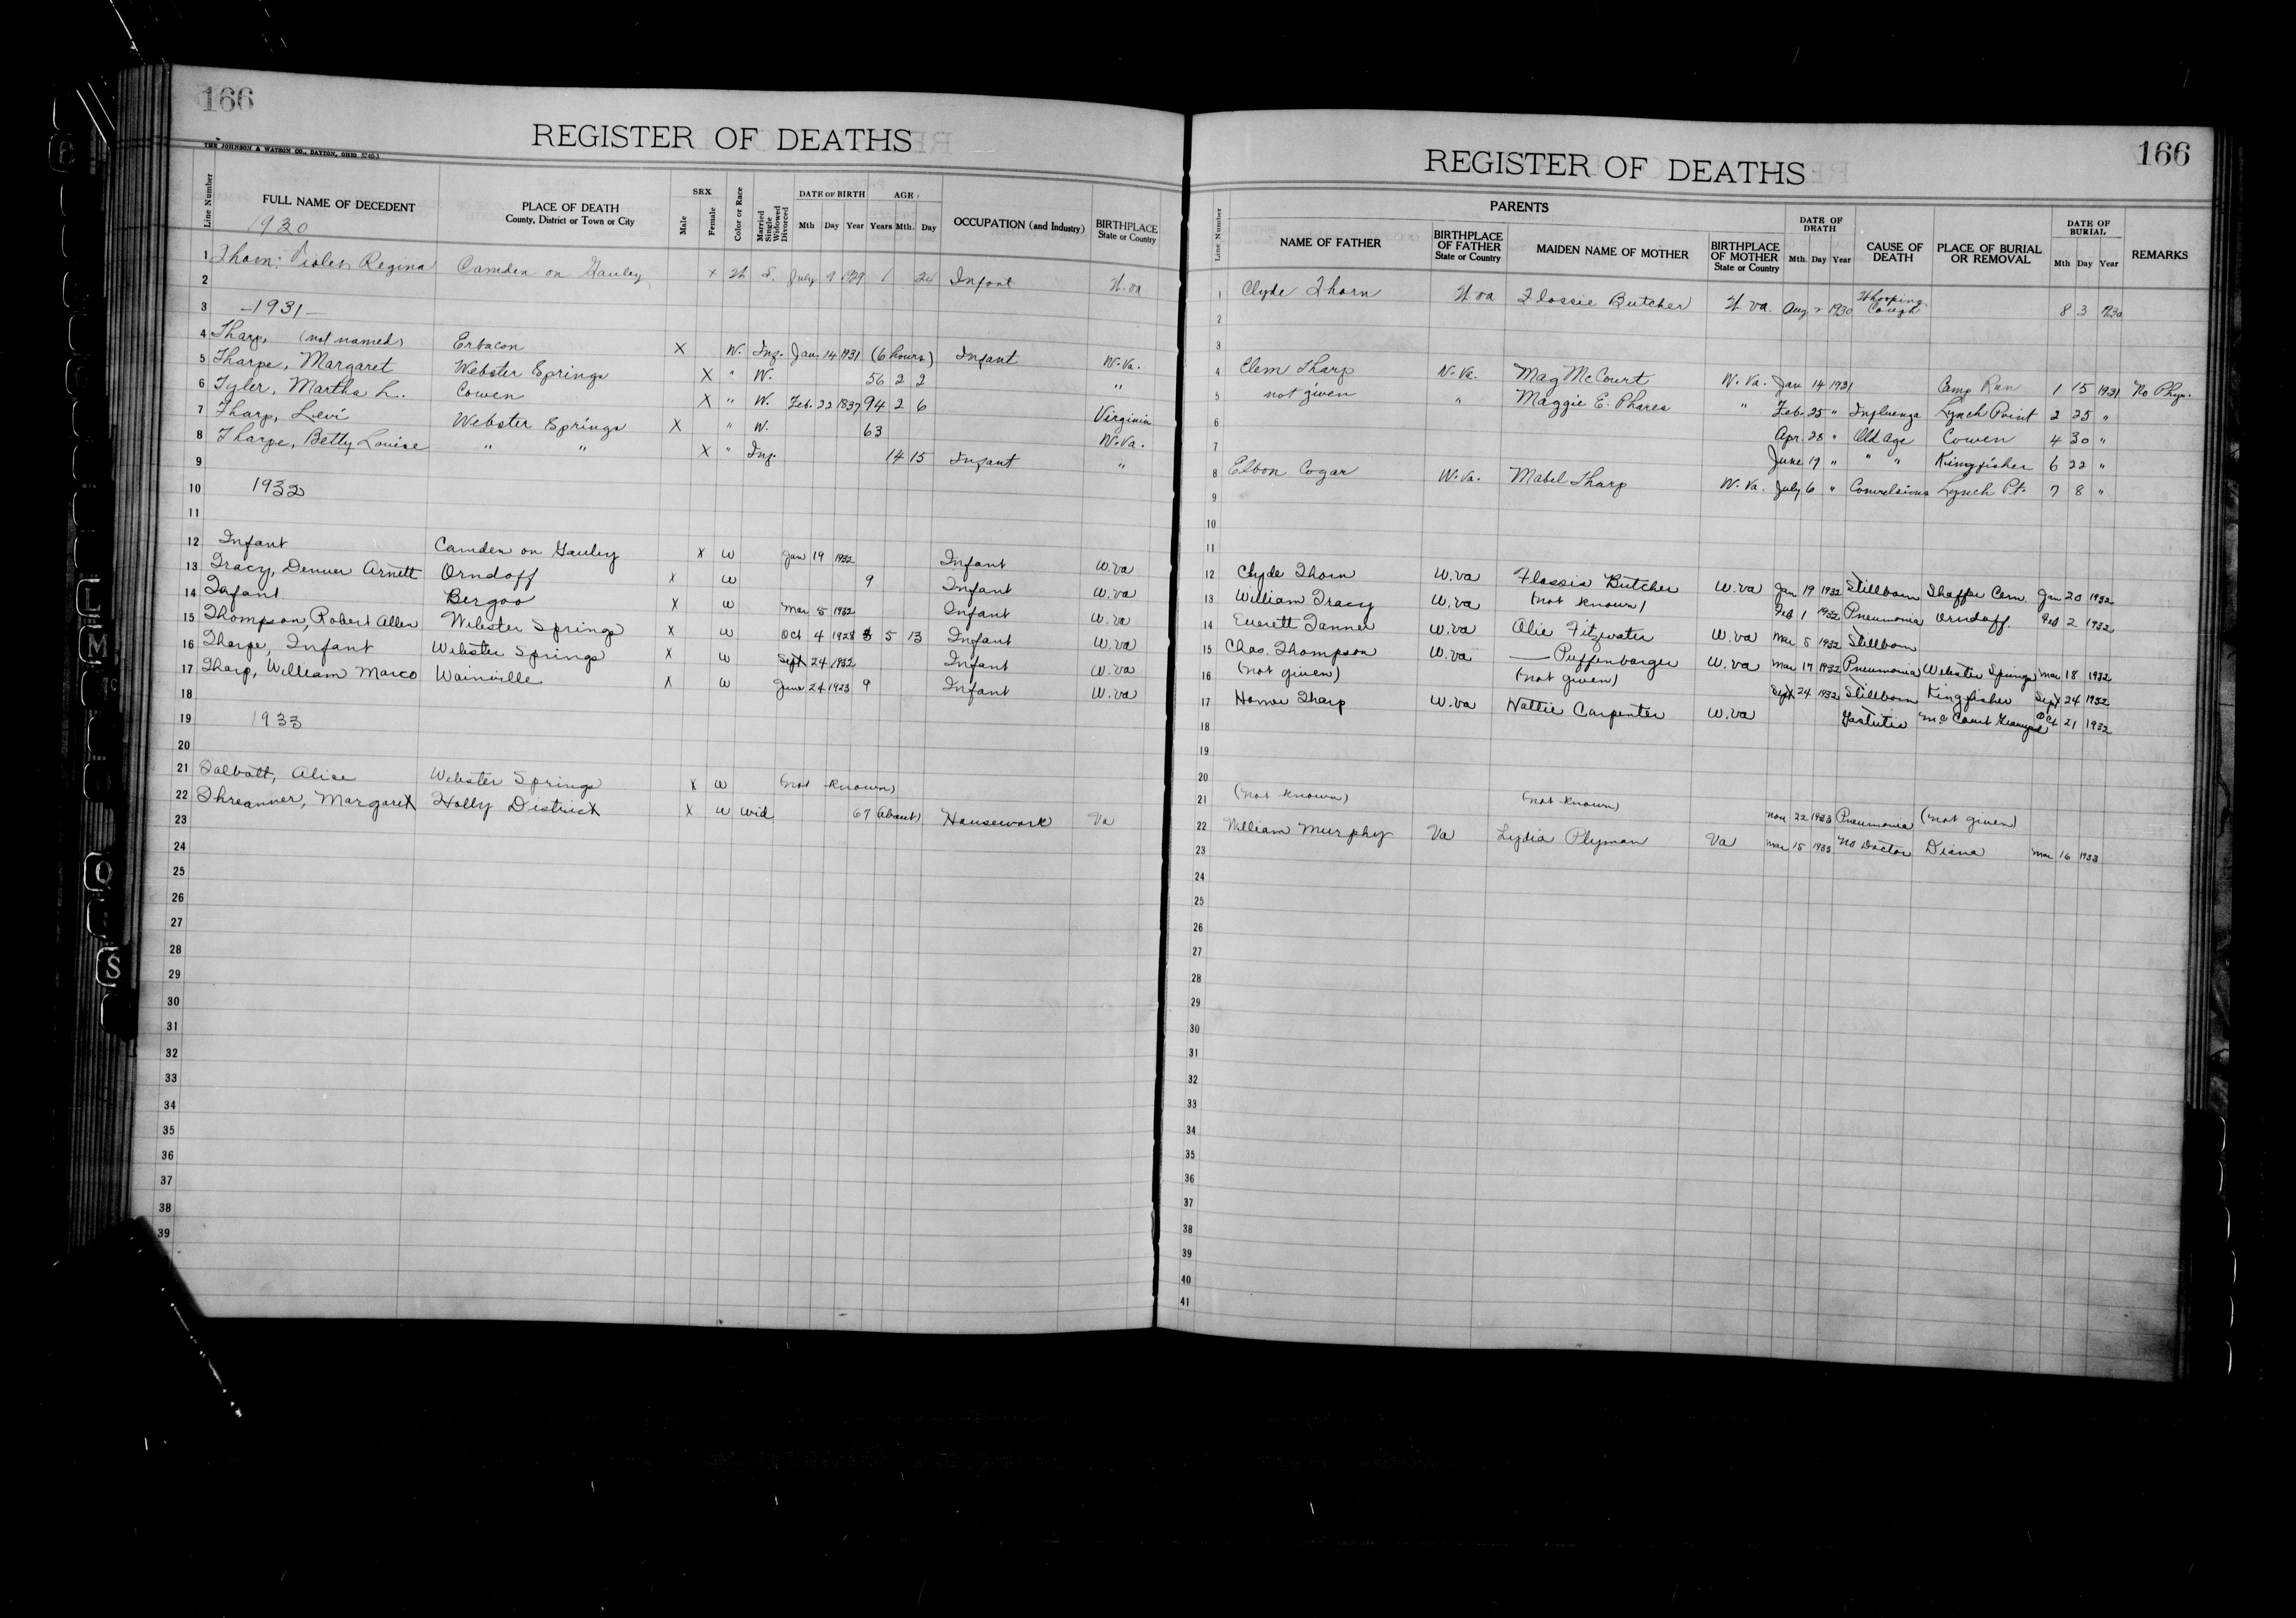 166
REGISTER OF DEATHS
THE JOHNSON & WATSON CO., DAYTON, OHIO
Line Number FULL NAME OF DECEDENT PLACE OF DEATH County, District or Town or City SEX Male Female Color or Race Married Single Widowed Divorced DATE OF BIRTH Mth Day Year AGE Years Mth. Day OCCUPATION (and Industry) BIRTHPLACE State or Country
1930
1 Thorn: Violet Regina Camden on Gauley x W S. July 9 1929 1 24 Infant W.va
2
3 -1931-
4 Tharp, (not named) Erbacon X W. Inf. Jan. 14 1931 (6 hours) Infant W.Va.
5 Tharpe, Margaret Webster Springs X " W. 56 2 2 "
6 Tyler, Martha L. Cowen X " W. Feb. 22 1837 94 2 6 Virginia
7 Tharp, Levi Webster Springs X " W. 63 W.Va.
8 Tharpe, Betty Louise " " X " Inf. 14 15 Infant "
9
10 1932
11
12 Infant Camden on Gauley X W Jan 19 1932 Infant W.va
13 Tracy, Denver Arnett Orndoff X W 9 Infant W.va
14 Infant Bergoo X W Mar 5 1932 Infant W.va
15 Thompson, Robert Allen Webster Springs X W Oct 4 1928 3 5 13 Infant W.va
16 Tharpe, Infant Webster Springs X W Sept 24 1932 Infant W.va
17 Tharp, William Marco Wainville X W June 24 1923 9 Infant W.va
18
19 1933
20
21 Talbott, Alice Webster Springs X W (not known)
22 Threanner, Margaret Holly District X W Wid. 67 (about) Housework Va
23
24
25
26
27
28
29
30
31
32
33
34
35
36
37
38
39
166
REGISTER OF DEATHS
Line Number PARENTS NAME OF FATHER BIRTHPLACE OF FATHER State or Country MAIDEN NAME OF MOTHER BIRTHPLACE OF MOTHER State or Country DATE OF DEATH Mth. Day Year CAUSE OF DEATH PLACE OF BURIAL OR REMOVAL DATE OF BURIAL Mth Day Year REMARKS
1 Clyde Thorn W va Flossie Butcher W. va. Aug 2 1930 Whooping Cough 8 3 1930
2
3
4 Clem Tharp W.Va. Mag McCourt W.Va. Jan 14 1931 Camp Run 1 15 1931 No Phys.
5 not given " Maggie E. Phares " Feb. 25 " Influenza Lynch Point 2 25 "
6 Apr. 28 " Old Age Cowen 4 30 "
7 June 19 " " " Kingfisher 6 22 "
8 Elbon Cogar W.Va. Mabel Tharp W.Va. July 6 " Convulsions Lynch Pt. 7 8 "
9
10
11
12 Clyde Thorn W.va Flossie Butcher W.va Jan 19 1932 Stillborn Shaffer Cem. Jan 20 1932
13 William Tracy W.va (not known) Feb 1 1932 Pneumonia Orndoff. Feb 2 1932
14 Everett Tanner W.va Alie Fitzwater W.va Mar 5 1932 Stillborn
15 Chas. Thompson W.va — Puffenbarger W.va Mar 17 1932 Pneumonia Webster Springs Mar 18 1932
16 (not given) (not given) Sept 24 1932 Stillborn Kingfisher Sept 24 1932
17 Homer Tharp W.va Hattie Carpenter W.va McCourt Graveyard Oct 21 1932
18
19
20
21 (not known) (not known) 22 1933 Pneumonia (not given)
22 William Murphy Va Lydia Plyman Va Mar 15 1933 No Doctor Diana Mar 16 1933
23
24
25
26
27
28
29
30
31
32
33
34
35
36
37
38
39
40
41